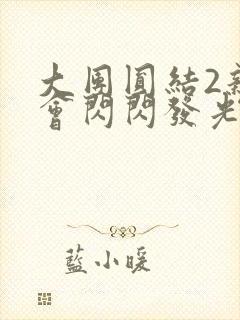 大團圓結2新
會閃閃發光
藍小暖